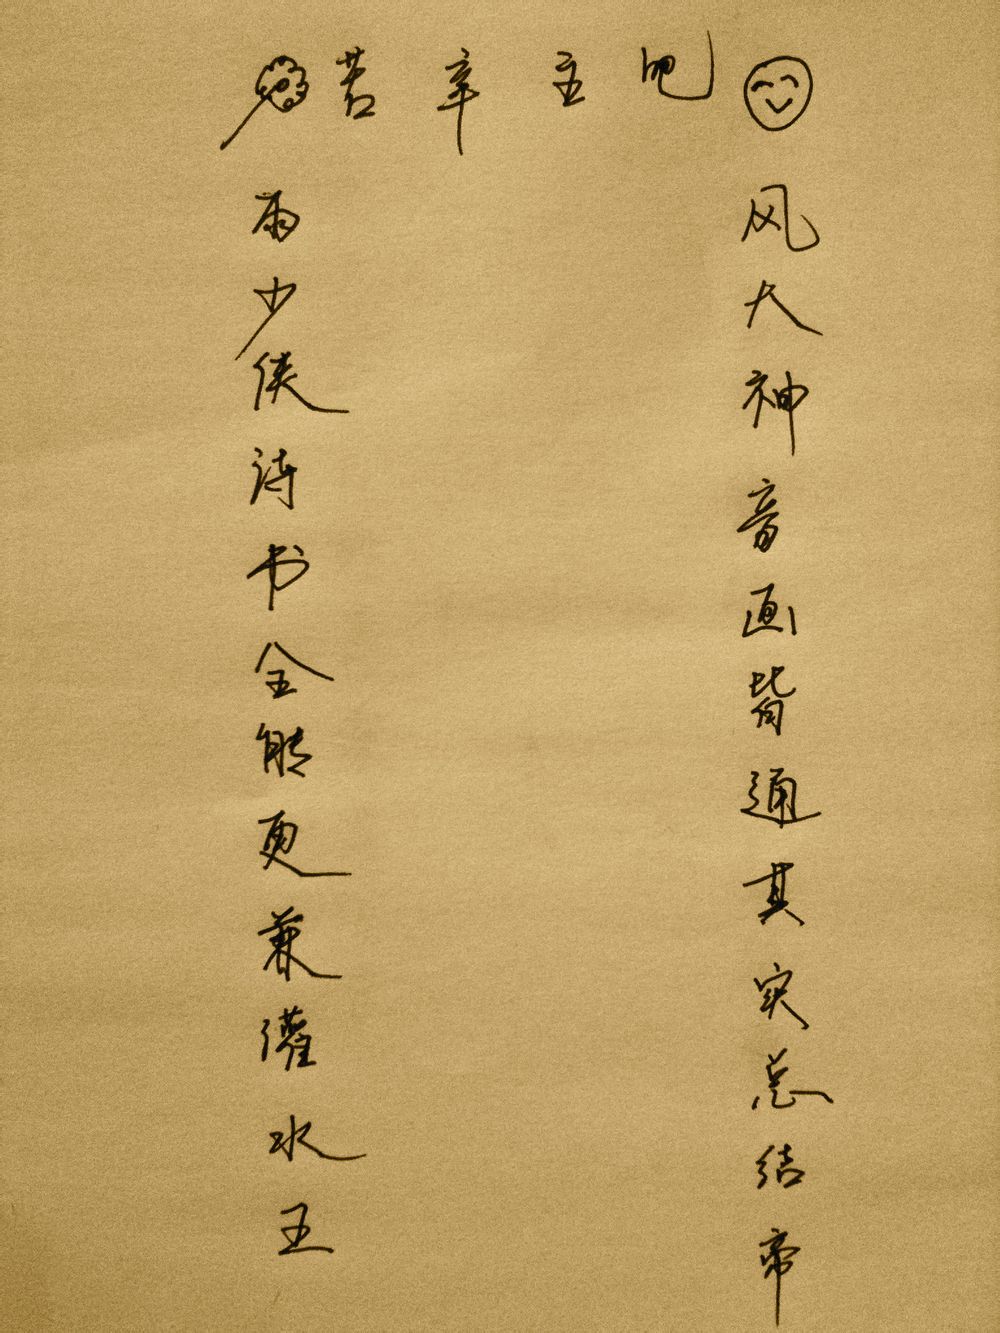 吧主辛苦
风大神音画皆通其实总结帝
雨少侠诗书全能更兼灌水王